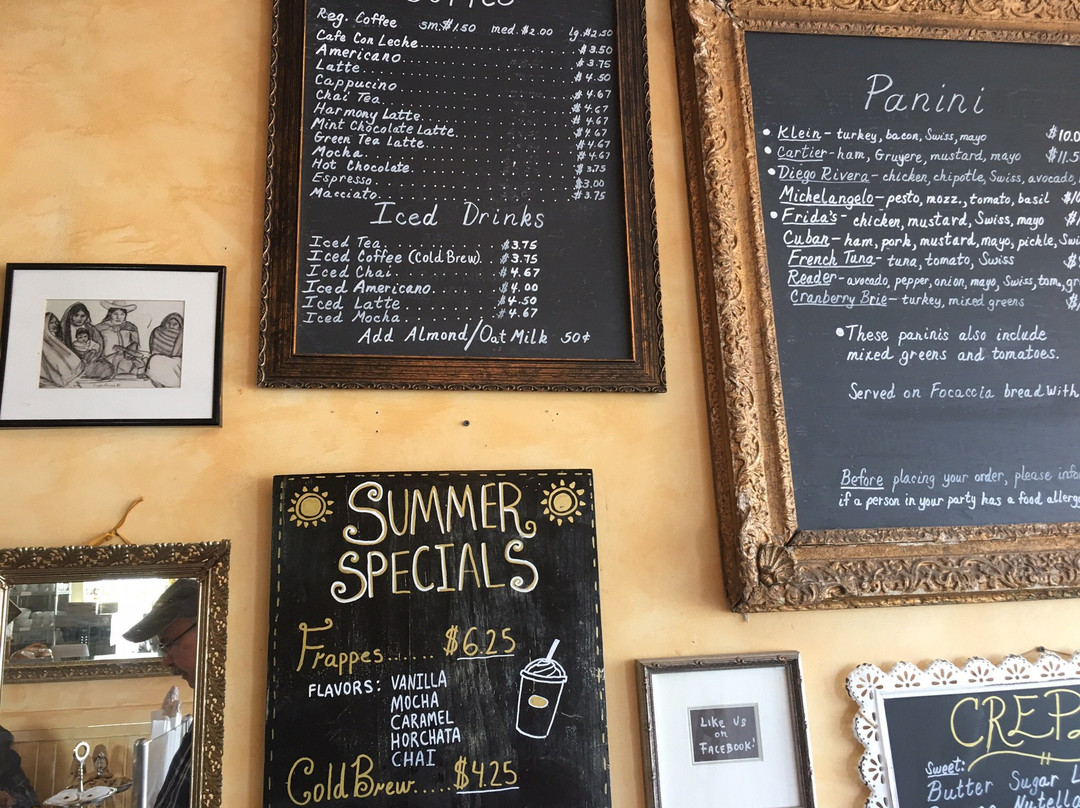 Coffee
Reg. Coffee sm.$1.50 med. $2.00 lg.$2.50
Cafe Con Leche $3.50
Americano $3.75
Latte $4.50
Cappucino $4.67
Chai Tea $4.67
Harmony Latte $4.67
Mint Chocolate Latte $4.67
Green Tea Latte $4.67
Mocha
Hot Chocolate $3.75
Espresso $3.00
Macciato $3.75
Iced Drinks
Iced Tea $3.75
Iced Coffee (Cold Brew) $3.75
Iced Chai $4.67
Iced Americano $4.00
Iced Latte $4.50
Iced Mocha $4.67
Add Almond/Oat Milk 50¢
Panini
Klein - turkey, bacon, Swiss, mayo $10.0
Cartier - ham, Gruyere, mustard, mayo $11.5
Diego Rivera - chicken, chipotle, Swiss, avocado,
Michelangelo - pesto, mozz., tomato, basil
Frida's - chicken, mustard, Swiss, mayo
Cuban - ham, pork, mustard, mayo, pickle, Swi
French Tuna - tuna, tomato, Swiss
Reader - avocado, pepper, onion, mayo, Swiss, tom., gr
Cranberry Brie - turkey, mixed greens
These paninis also include
mixed greens and tomatoes.
Served on Focaccia bread with
Before placing your order, please info
if a person in your party has a food allerg
SUMMER
SPECIALS
Frappes...... $6.25
FLAVORS: VANILLA
MOCHA
CARAMEL
HORCHATA
CHAI
Cold Brew..... $4.25
LIKE US
on
FACEBOOK!
CREP
Sweet:
Butter Sugar L
Nutella